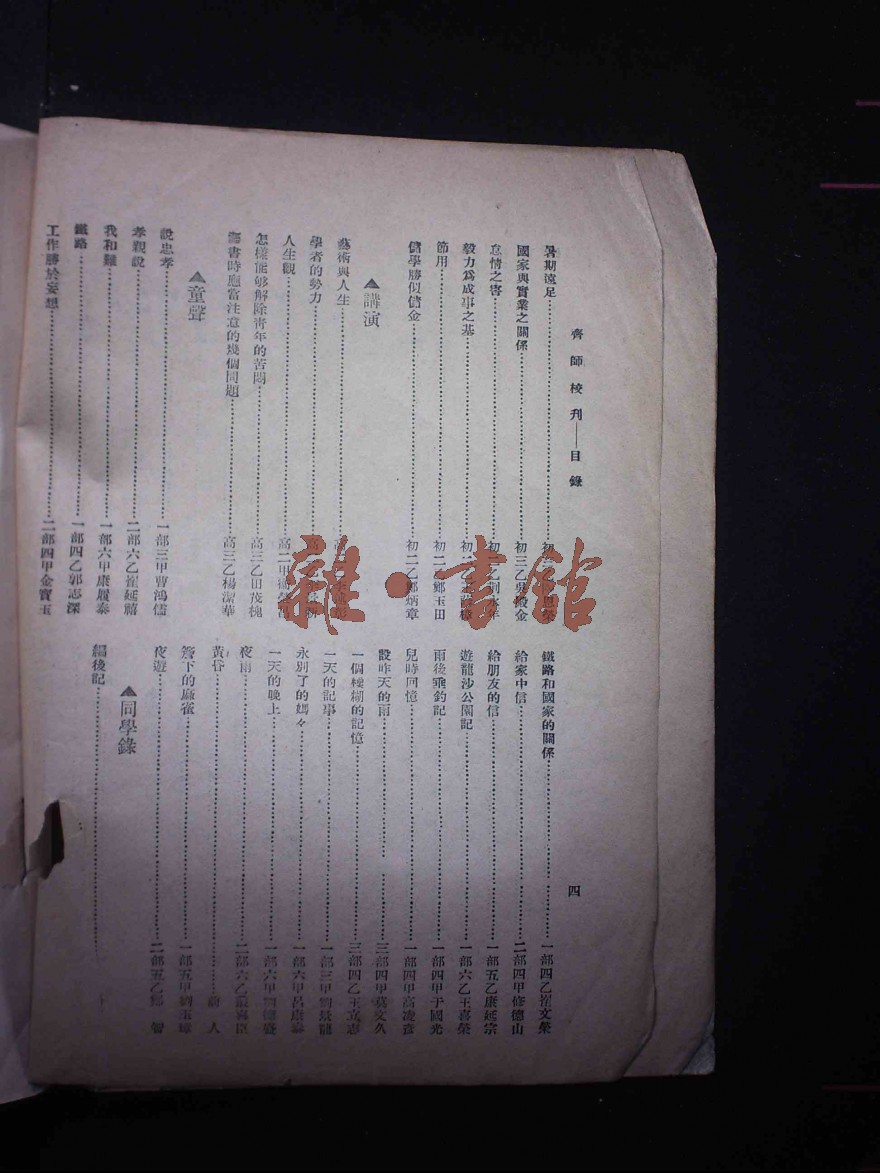 齊師校刊——目錄
四
暑期遠足
國家與實業之關係 初三乙吳殿金
怠惰之害
毅力爲成事之基
節用 初二乙鄭玉田
儲學勝似儲金 初二乙鄭炳章
▲講演
藝術與人生
學者的勢力
人生觀
怎樣能够解除青年的苦悶 高三乙田茂槐
書時應當注意的幾個問題 高三乙楊潔華
▲童聲
說忠孝 一部三甲曹鴻儒
孝親說 二部六乙崔延禧
我和雞 一部六甲康履泰
鐵路 一部四乙郭志深
工作勝於妄想 二部四甲金寶玉
鐵路和國家的關係 一部四乙崔文榮
給家中信 二部四甲修德山
給朋友的信 一部五乙康延宗
遊龍沙公園記 一部六乙王喜榮
雨後乘釣記 一部四甲于國光
兒時回憶 一部四甲高凌彥
說昨天的雨 三部四甲莫文久
一個糢糊的記憶 三部四乙王立志
一天的記事 一部三甲劉景龍
永別了的媽々 一部六甲呂康泰
一天的晚上 一部六甲劉德盛
夜雨 二部六乙嚴喜臣
黃昏 前人
簷下的麻雀 一部五甲劉玉璋
夜遊 二部五乙鄭智
▲同學錄
編後記
雜·書館